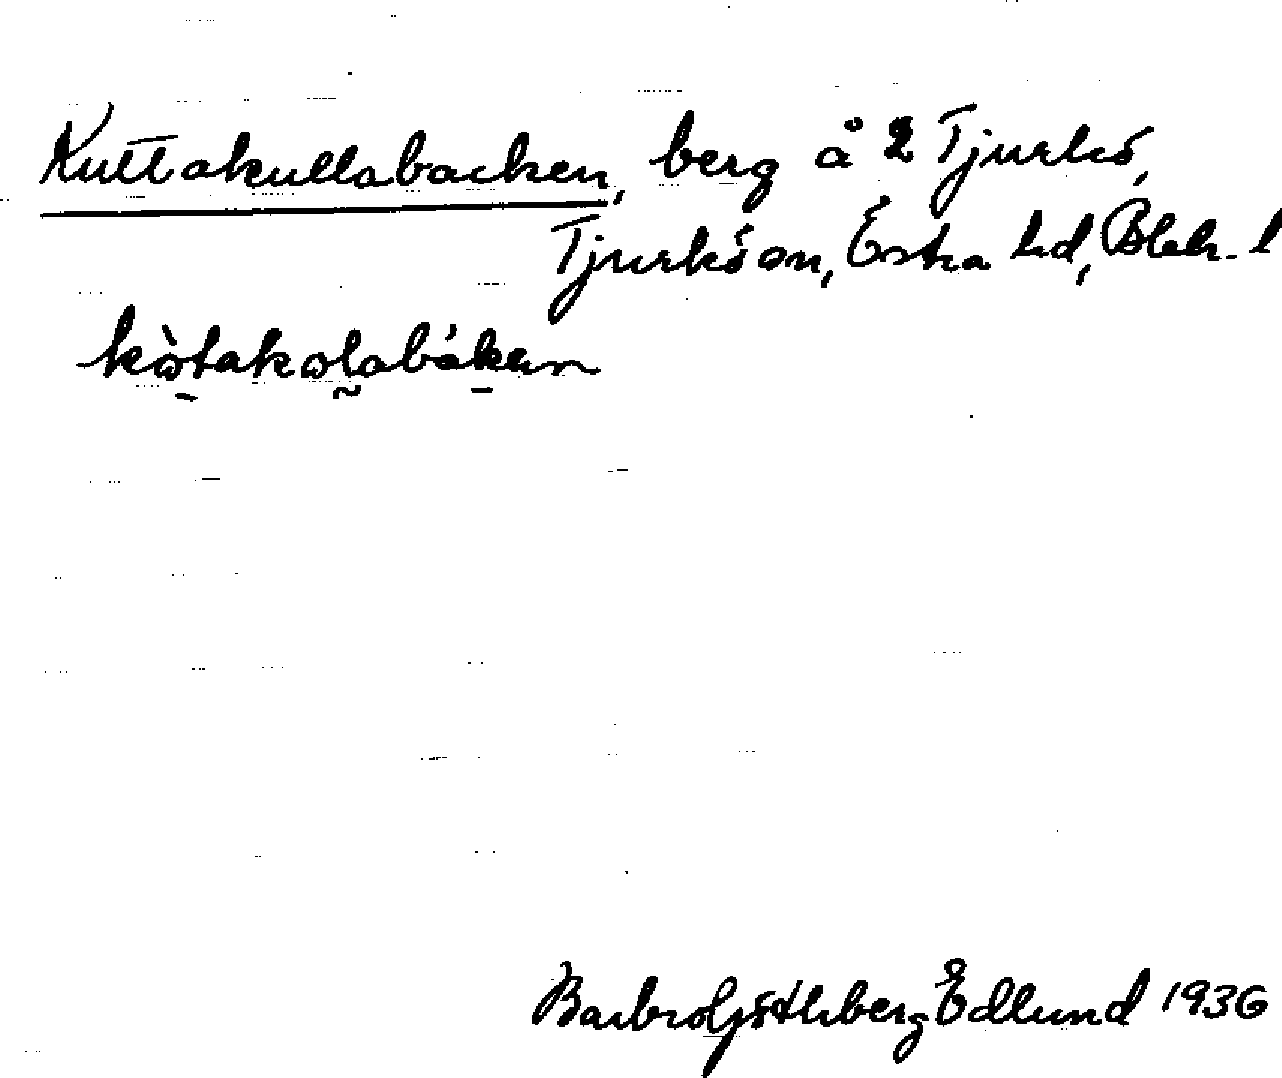 Kuttakullabacken, berg å 2 Tjurkö,
Tjurkö sn, Östra hd, Blek. l
kòtakolabákan
Barbro Ljsthberg Edlund 1936